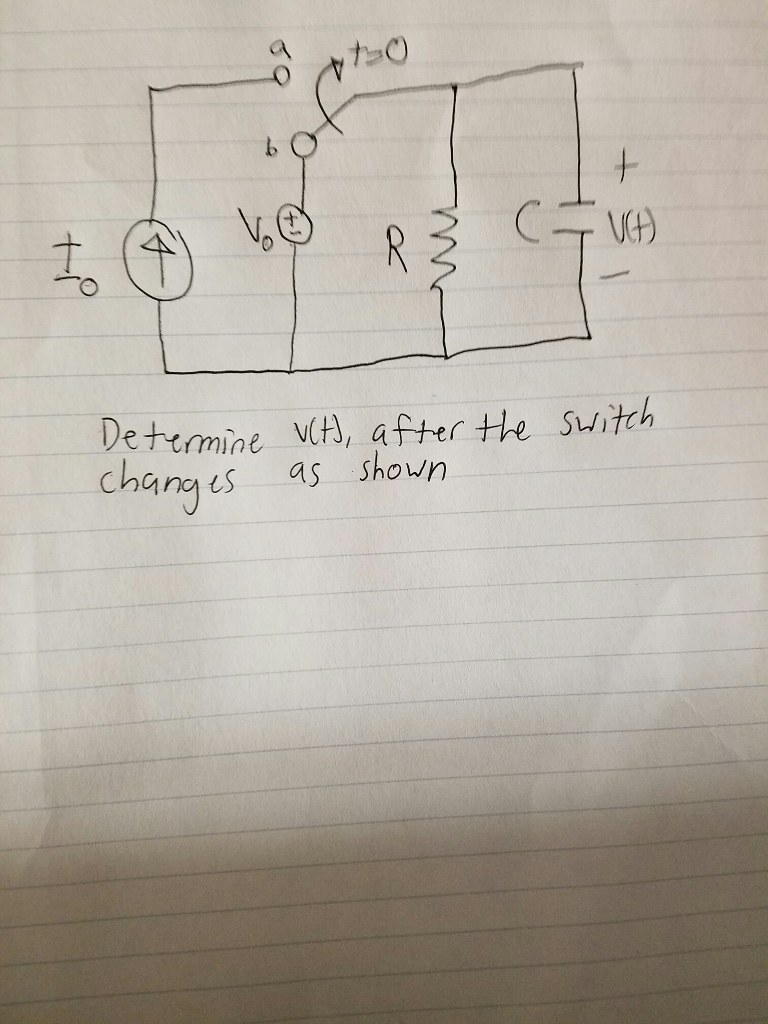 a
t=0
b
V₀
+
-
I₀
R
C
+
V(t)
-
Determine v(t), after the switch
changes as shown